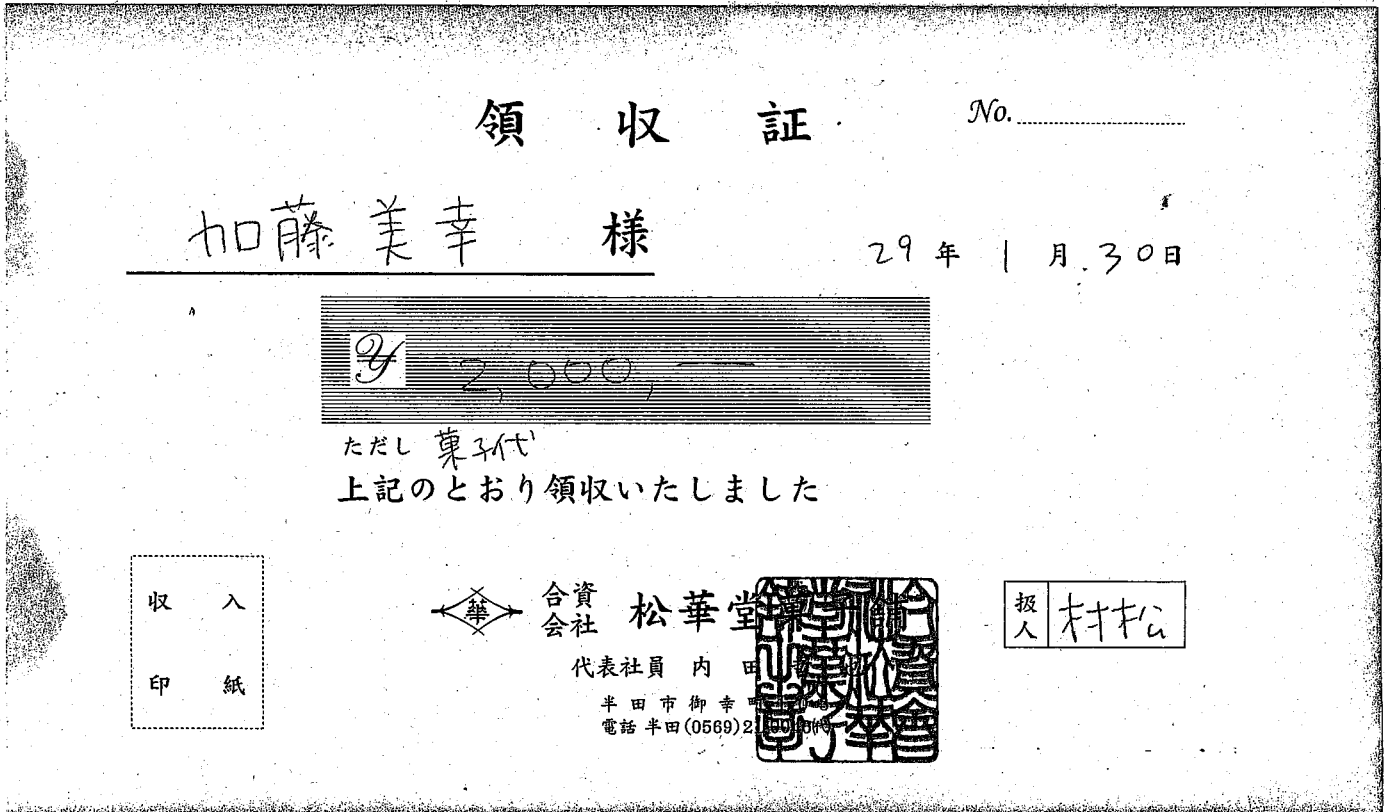 領収証
No.
加藤美幸 様
29年1月30日
¥ 2,000,—
ただし 菓子代
上記のとおり領収いたしました
収入
印紙
華
合資会社 松華堂
代表社員 内田
半田市御幸町
電話 半田(0569)2
扱人 村松